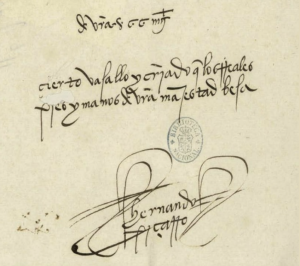 de vra. c c mt
çierto vasallo y criado q los Reales
pies y manos de vra magestad besa
BIBLIOTECA
hernando
piçarro